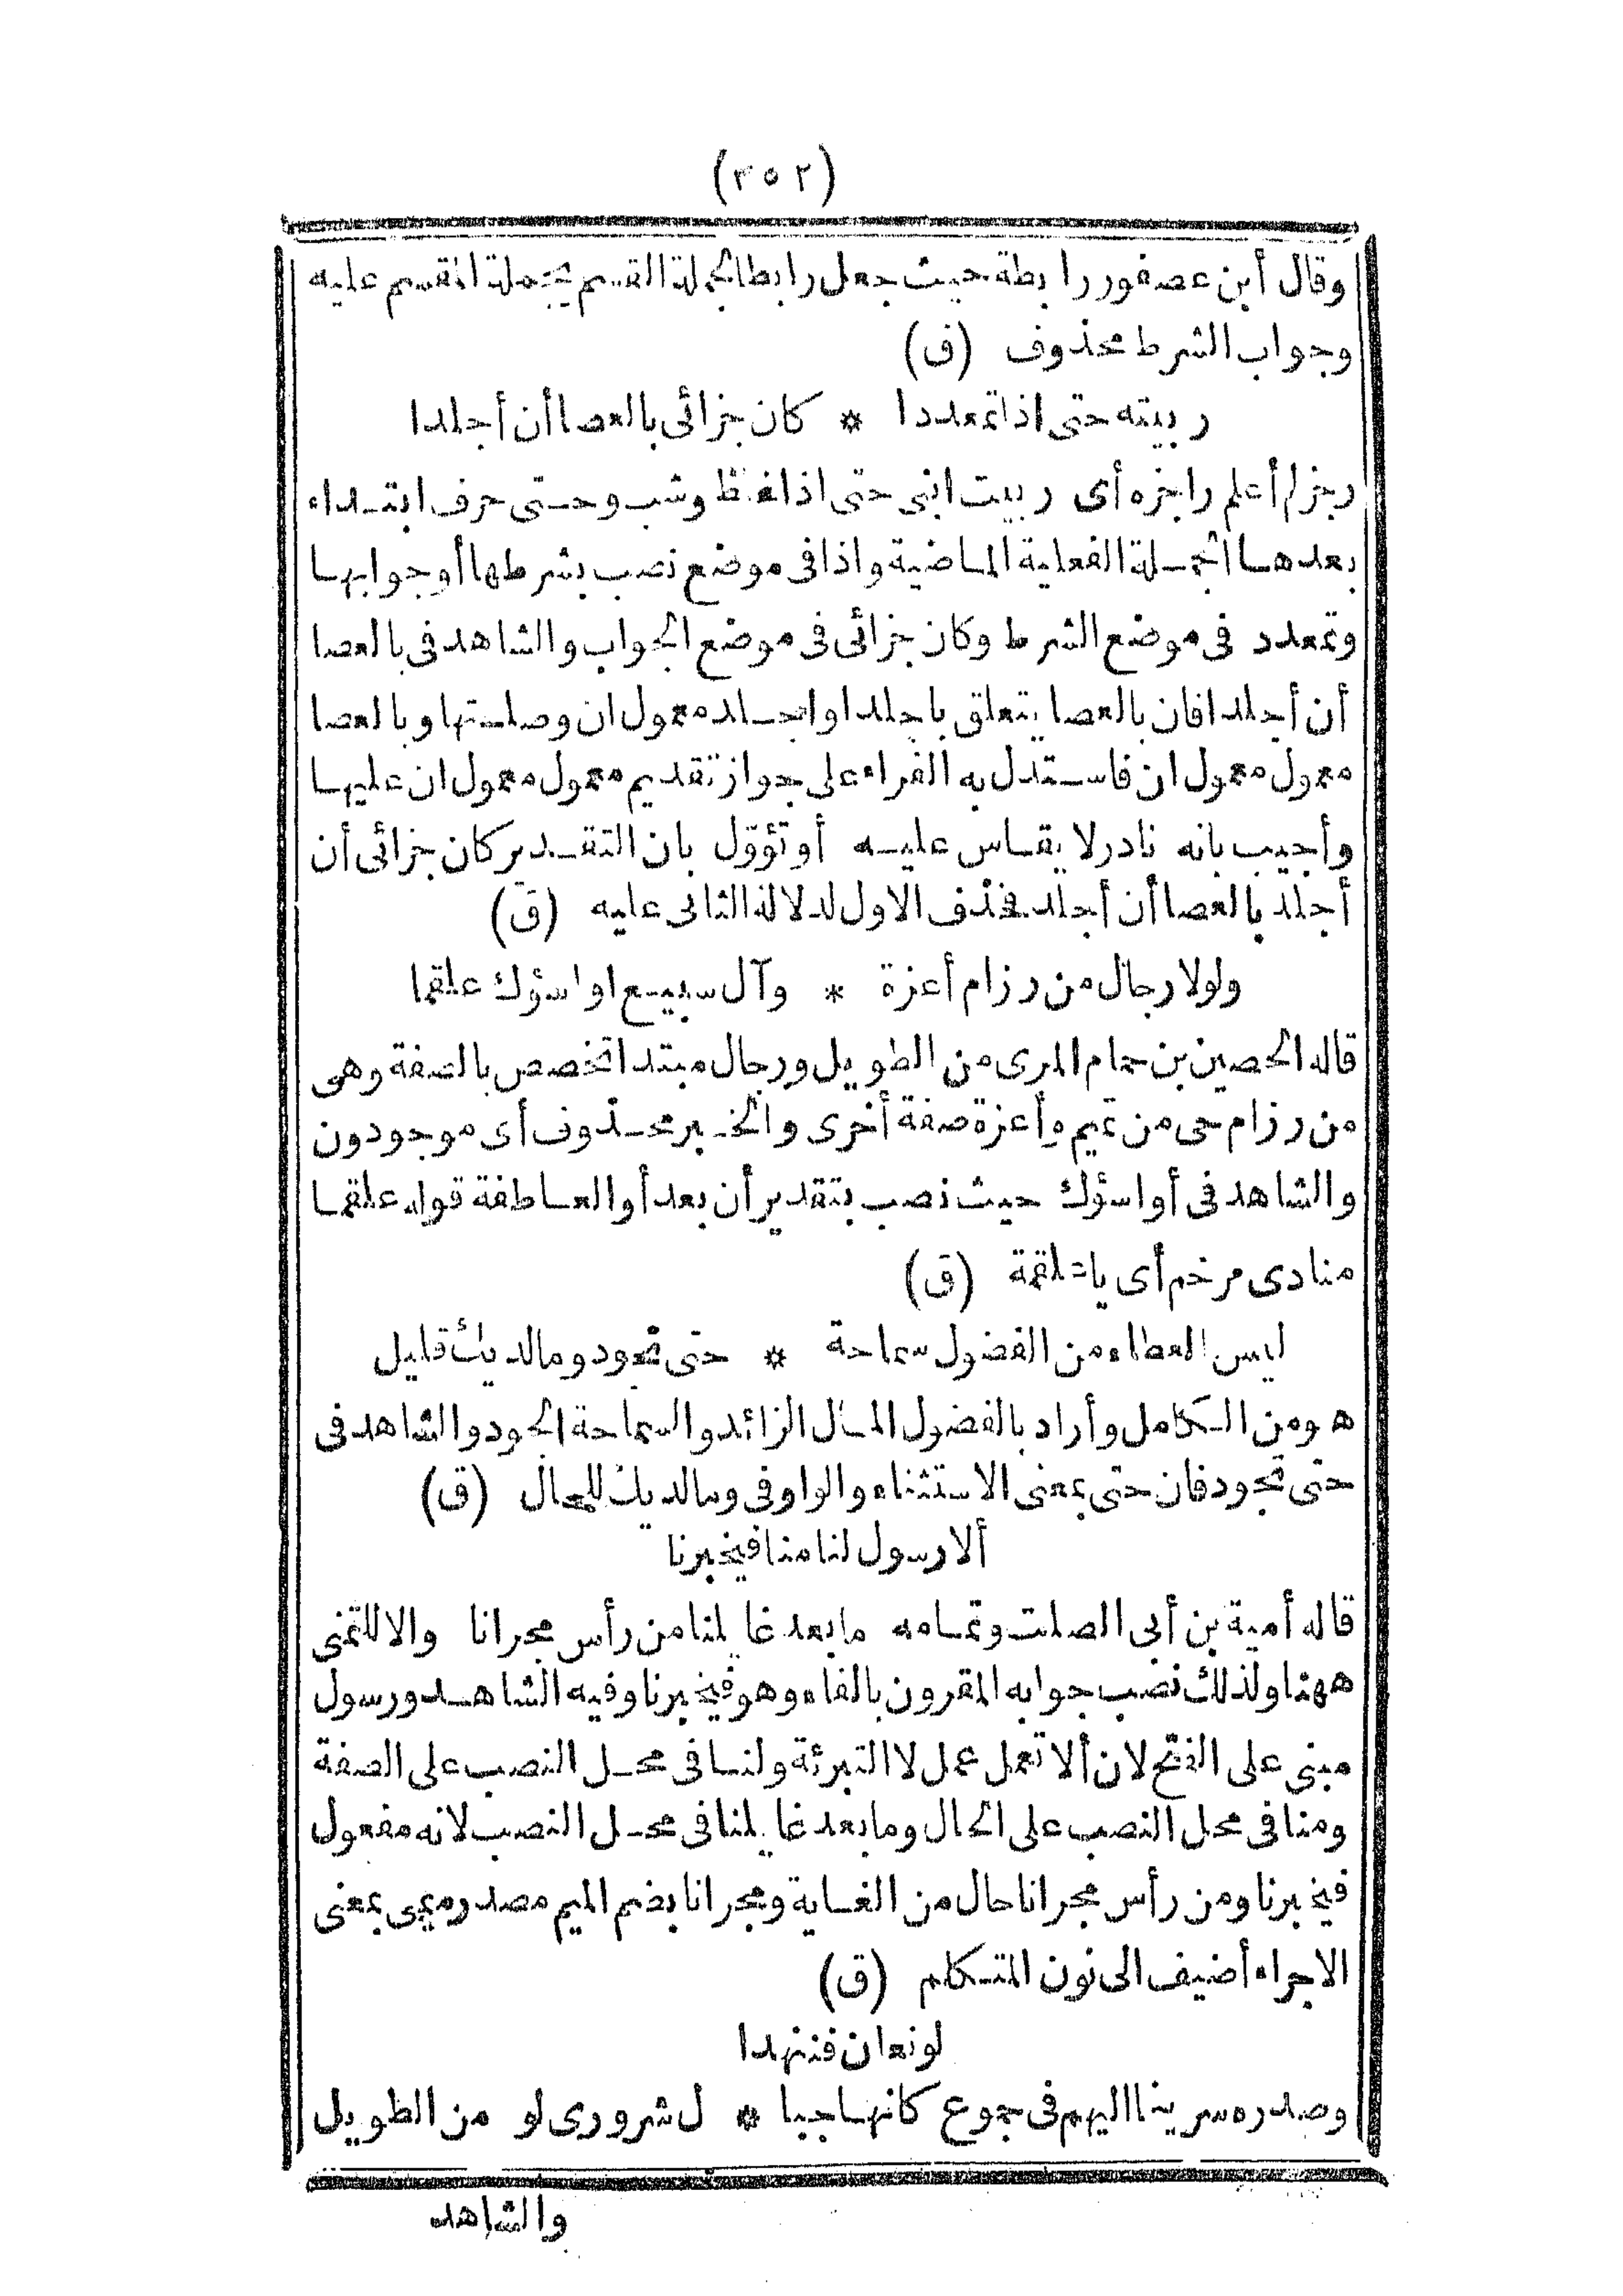 (٣٥٢)
وقال أبن عصفور رابطة حيث جعل رابطا لجملة القسم بجملة المقسم عليه
وجواب الشرط محذوف (ق)
ربيته حتى اذا تمعددا * كان جزائى بالعصا أن أجلدا
رجز لم أعلم راجزه أى ربيت ابنى حتى اذا غلظ وشب وحتى حرف ابتداء
بعدها الجملة الفعلية الماضية واذا فى موضع نصب بشرطها أو جوابها
وتمعدد فى موضع الشرط وكان جزائى فى موضع الجواب والشاهد فى بالعصا
أن أجلدا فان بالعصا يتعلق باجلدا واجلد معمول ان وصلتها وبالعصا
معمول معمول ان فاستدل به الفراء على جواز تقديم معمول معمول ان عليها
وأجيب بانه نادر لا يقاس عليه أو تؤوّل بان التقدير كان جزائى أن
أجلد بالعصا أن أجلد فحذف الاول لدلالة الثانى عليه (ق)
ولولا رجال من رزام أعزة * وآل سبيع او اسؤك علقما
قاله الحصين بن حمام المرى من الطويل ورجال مبتدا تخصص بالصفة وهى
من رزام حى من تميم وأعزة صفة أخرى والخبر محذوف أى موجودون
والشاهد فى أو اسؤك حيث نصب بتقدير أن بعد أو العاطفة قوله علقما
منادى مرخم أى يا علقمة (ق)
ليس العطاء من الفضول سماحة * حتى تجود وما لديك قليل
هو من الكامل وأراد بالفضول المال الزائد والسماحة الجود والشاهد فى
حتى تجود فان حتى بمعنى الاستثناء والواو فى وما لديك للحال (ق)
ألا رسول لنا منا فيخبرنا
قاله أمية بن أبى الصلت وتمامه ما بعد غايلنا من رأس مجرانا والا للتمنى
ههنا ولذلك نصب جوابه المقرون بالفاء وهو فيخبرنا وفيه الشاهد ورسول
مبنى على الفتح لان ألا تعمل عمل لا التبرئة ولنا فى محل النصب على الصفة
ومنا فى محل النصب على الحال وما بعد غايلنا فى محل النصب لانه مفعول
فيخبرنا ومن رأس مجرانا حال من الغاية ومجرانا بضم الميم مصدر ميمى بمعنى
الاجراء أضيف الى نون المتكلم (ق)
لو نعان فننهدا
وصدره سرينا اليهم فى جموع كانها جبا * ل شرورى لو من الطويل
والشاهد